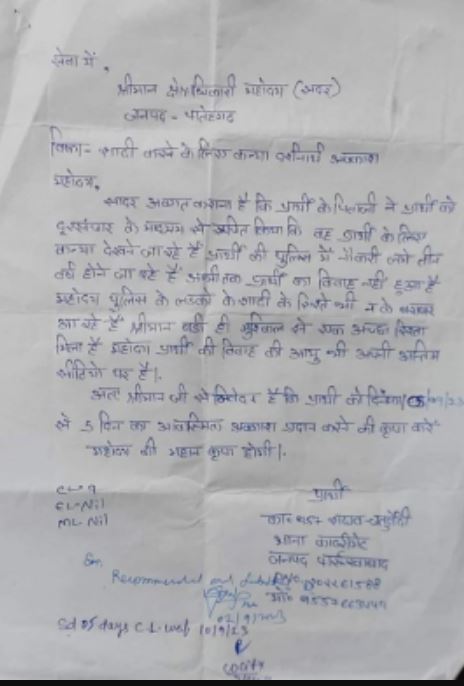 सेवा में,
श्रीमान क्षेत्राधिकारी महोदय (सदर)
जनपद - फतेहगढ़
विषय- शादी करने के लिए कन्या दर्शनार्थ अवकाश
महोदय,
सादर अवगत कराना है कि प्रार्थी के पिताजी ने प्रार्थी को
दूरसंचार के माध्यम से सूचित किया कि वह प्रार्थी के लिए
कन्या देखने जा रहे है प्रार्थी की पुलिस में नौकरी लगे तीन
वर्ष होने जा रहे है अभी तक प्रार्थी का विवाह नही हुआ है
महोदय पुलिस के लड़को के शादी के रिश्ते भी न के बराबर
आ रहे है श्रीमान बड़ी ही मुश्किल से एक अच्छा रिश्ता
मिला है महोदय प्रार्थी की विवाह की आयु भी अपनी अन्तिम
सीढियो पर है।
अतः श्रीमान जी से निवेदन है कि प्रार्थी को दिनांक
से 5 दिन का आकस्मिक अवकाश प्रदान करने की कृपा करे
महोदय की महान कृपा होगी।
प्रार्थी
EL-Nil
ML-Nil
का० 957 राघव चतुर्वेदी
थाना कादरीगेट
जनपद फर्रुखाबाद
Sir,
Recommended and
Sd 05 days C.L. wef 10/9/23